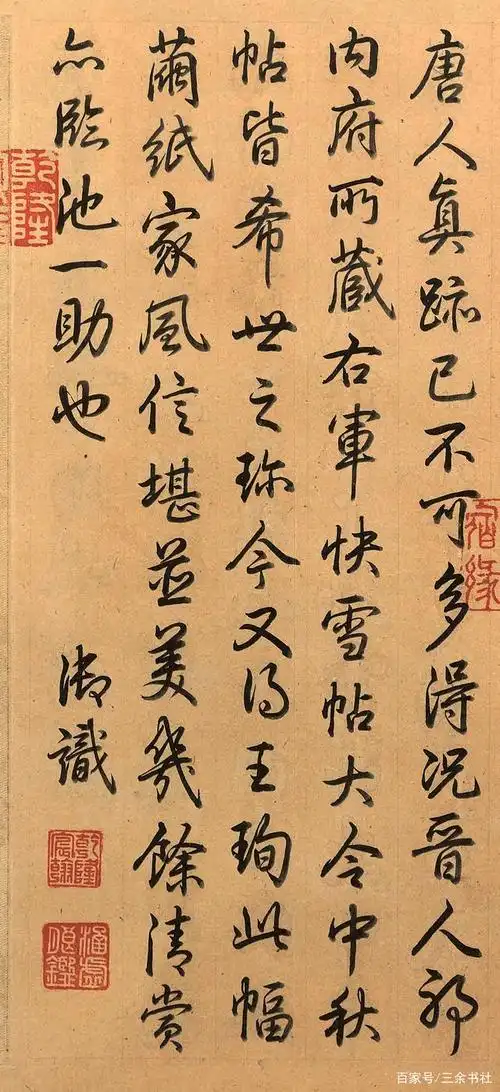 唐人真跡已不可多得况晉人耶
内府所藏右軍快雪帖大令中秋
帖皆希世之珍今又得王珣此幅
繭紙家風信堪並美幾餘清賞
亦臨池一助也 御識
乾隆
乾隆宸翰
涵虛朗鑑
百家号/三余书社